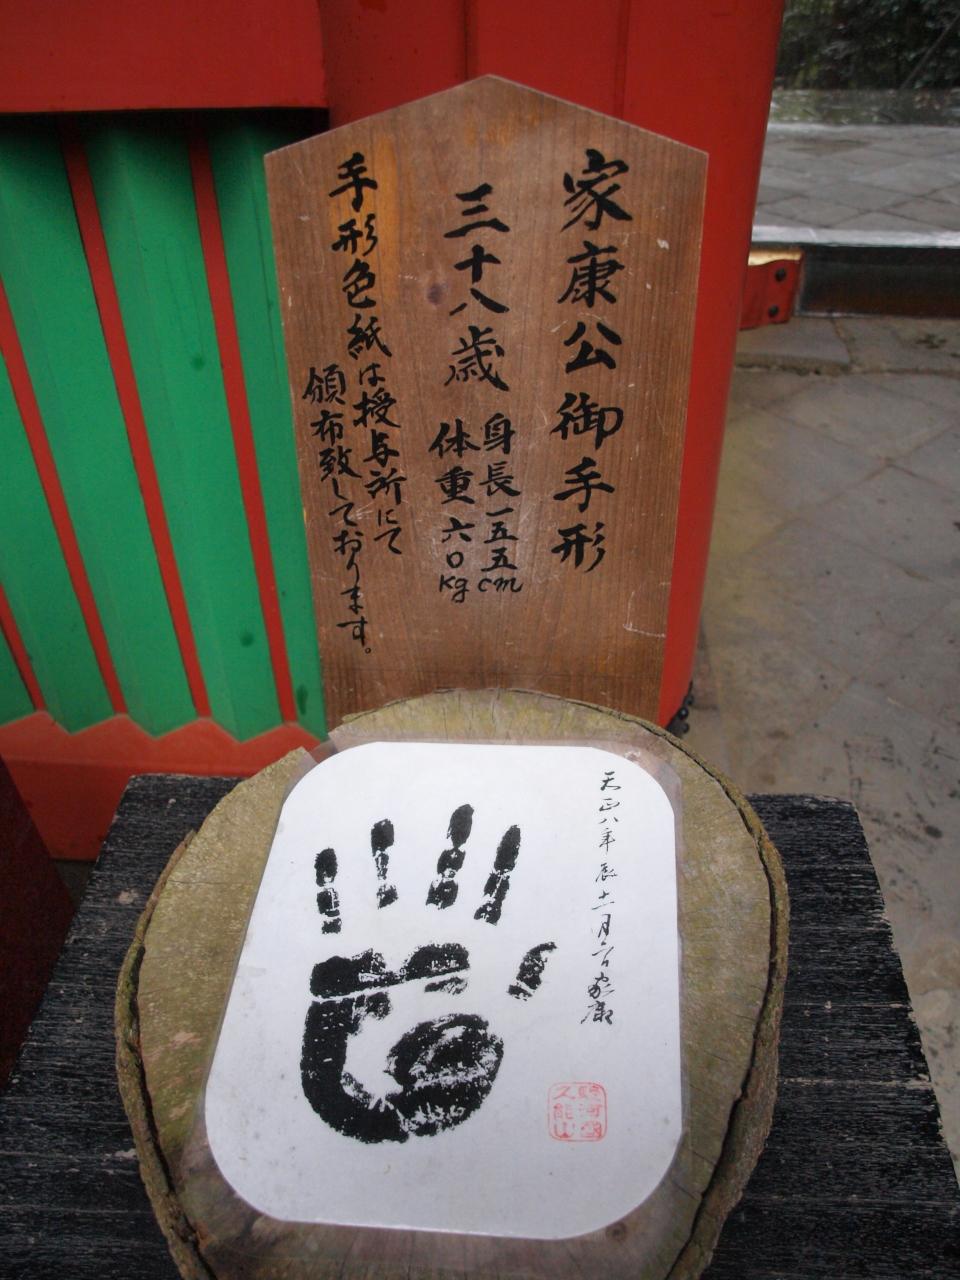 家康公御手形
三十八歳
身長一五五cm
体重六〇kg
手形色紙は授与所にて
頒布致しております。
天正八年辰十一月六日家康
駿河國
久能山